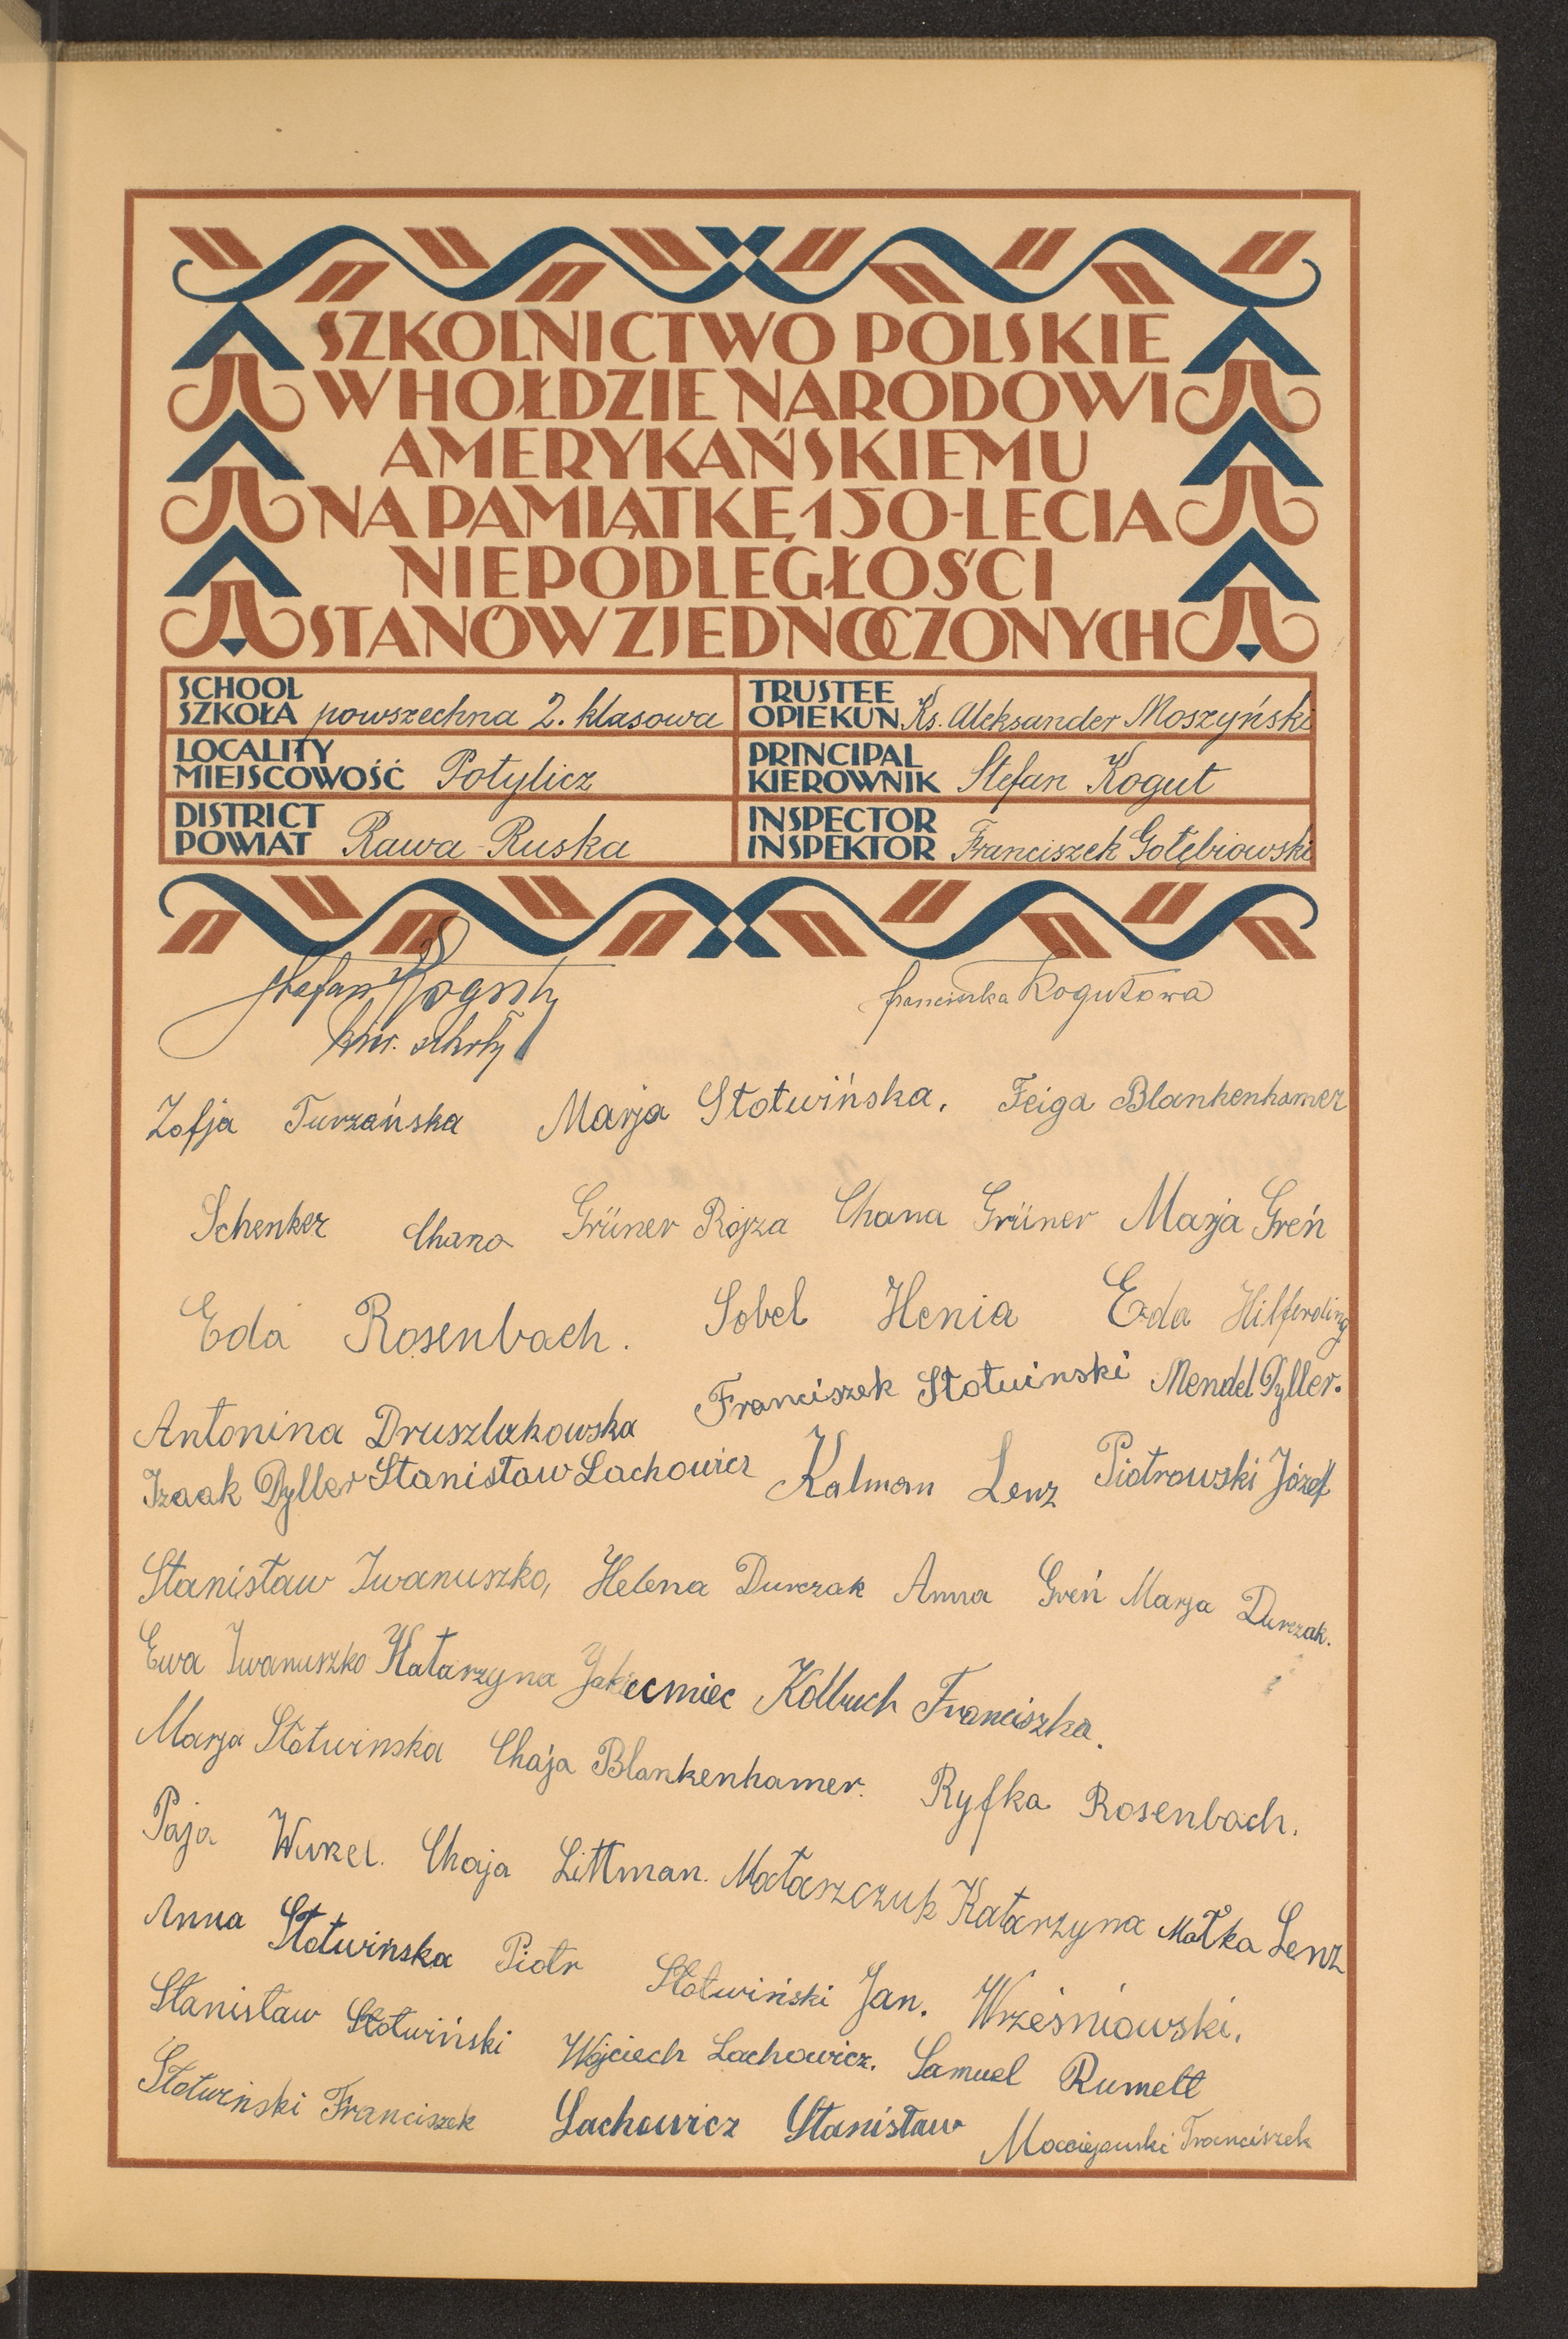 SZKOLNICTWO POLSKIE
W HOŁDZIE NARODOWI
AMERYKAŃSKIEMU
NA PAMIĄTKĘ 150-LECIA
NIEPODLEGŁOŚCI
STANÓW ZJEDNOCZONYCH
SCHOOL
SZKOŁA powszechna 2. klasowa
TRUSTEE
OPIEKUN Ks. Aleksander Moszyński
LOCALITY
MIEJSCOWOŚĆ Potylicz
PRINCIPAL
KIEROWNIK Stefan Kogut
DISTRICT
POWIAT Rawa-Ruska
INSPECTOR
INSPEKTOR Franciszek Gołębiowski
Stefan Kogut Franciszka Kogutowa
kier. szkoły
Zofja Turzańska Marja Słotwińska. Feiga Blankenhamer
Schenker Chana Grüner Rojza Chana Grüner Marja Greń
Eda Rosenbach. Sobel Henia Eda Hilferding
Antonina Druszlakowska Franciszek Słotwinski Mendel Dyller.
Izaak Dyller Stanisław Lachowicz Kalman Lenz Piotrowski Józef
Stanisław Iwanuszko, Helena Durczak Anna Greń Marja Durczak.
Ewa Iwanuszko Katarzyna Kolbuch Franciszka.
Marja Słotwinska Chaja Blankenhamer. Ryfka Rosenbach.
Paja Wurzel. Chaja Littman. Mataszczuk Katarzyna Małka Lenz
Anna Słotwińska Piotr Słotwiński Jan. Wrześniowski.
Stanisław Słotwiński Wojciech Lachowicz. Samuel Rumelt
Słotwiński Franciszek Lachowicz Stanisław Maciejowski Franciszek